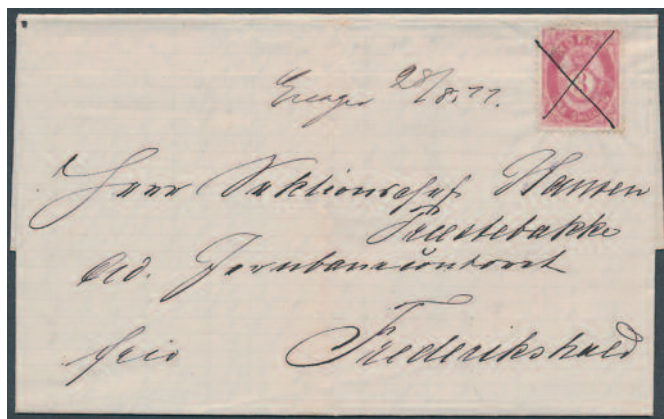 28/8.77.
3
Herr Sektionschef Hansen
Præstebakke
Jernbanecontoret
Frederikshald